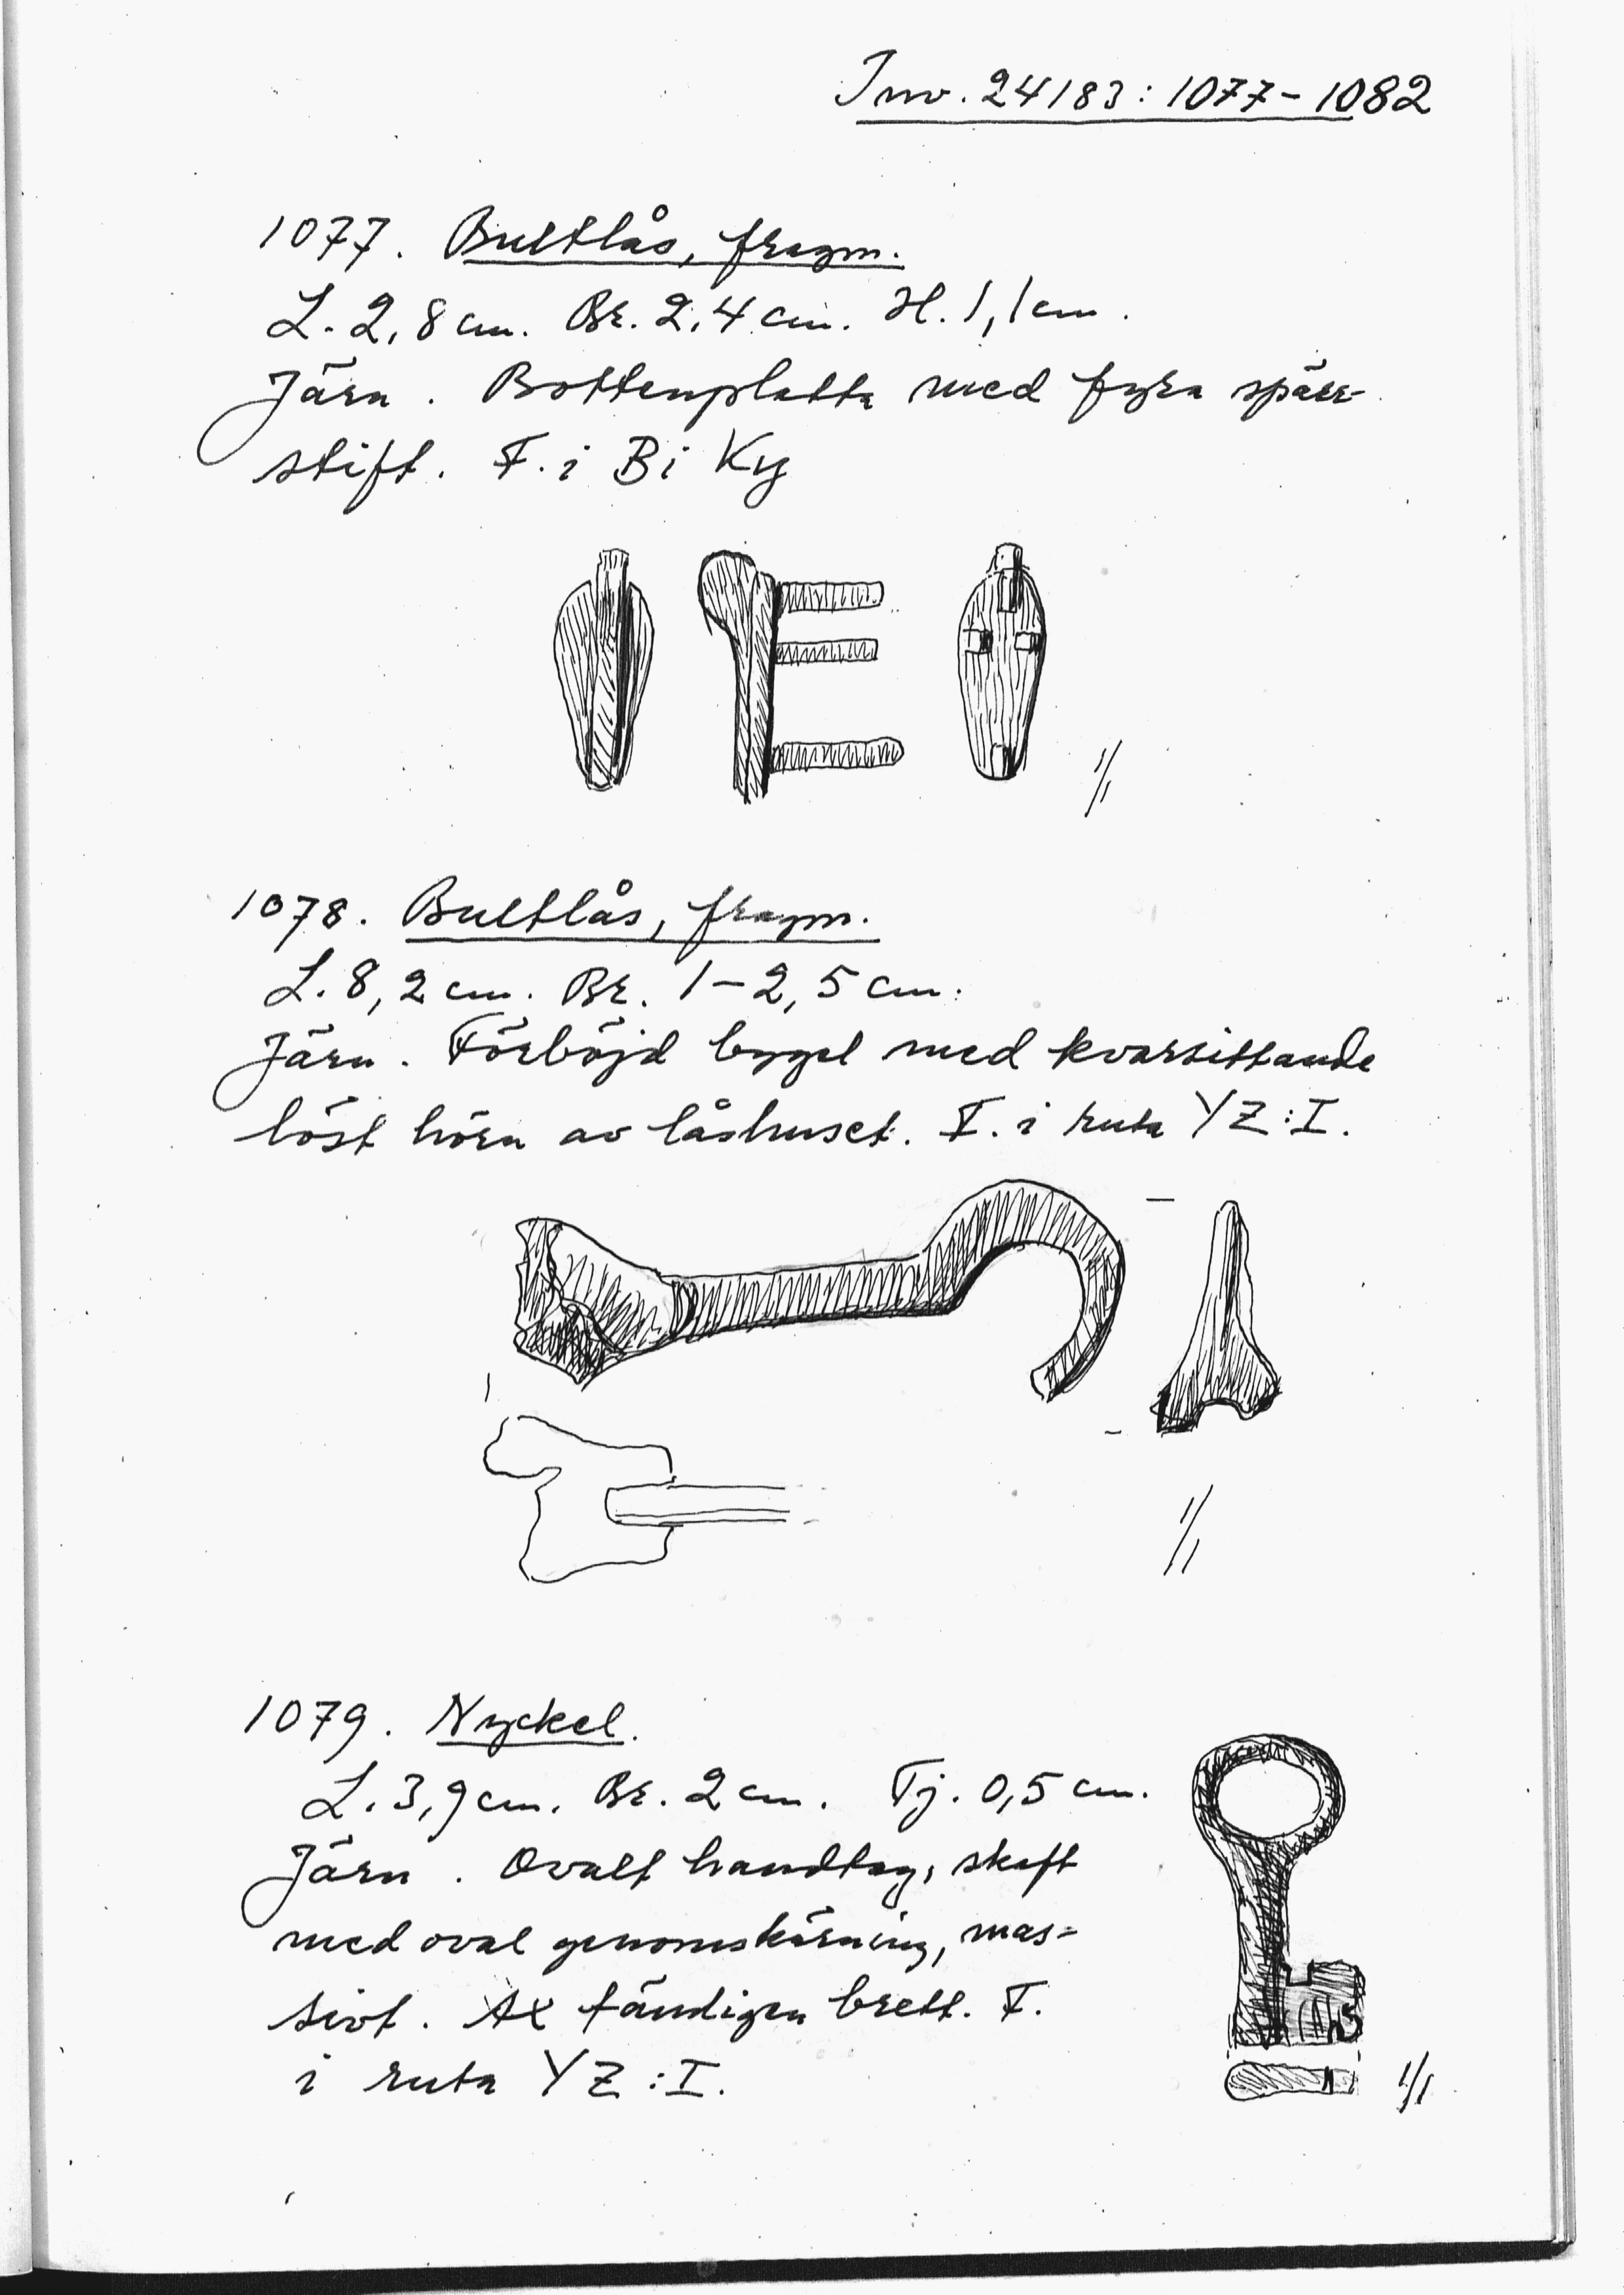 Inv. 24183:1077-1082
1077. Bultlås, fragm.
L. 2,8 cm. Br. 2,4 cm. H. 1,1 cm.
Järn. Bottenplatta med fyra spärr-
stift. F. i Bi Ky
1/1
1078. Bultlås, fragm.
L. 8,2 cm. Br. 1-2,5 cm.
Järn. Förböjd bygel med kvarsittande
löst hörn av låshuset. F. i ruta YZ:I.
1/1
1079. Nyckel.
L. 3,9 cm. Br. 2 cm. Tj. 0,5 cm.
Järn. Ovalt handtag, skaft
med oval genomskärning, mas-
sivt. Ax tämligen brett. F.
i ruta YZ:I.
1/1